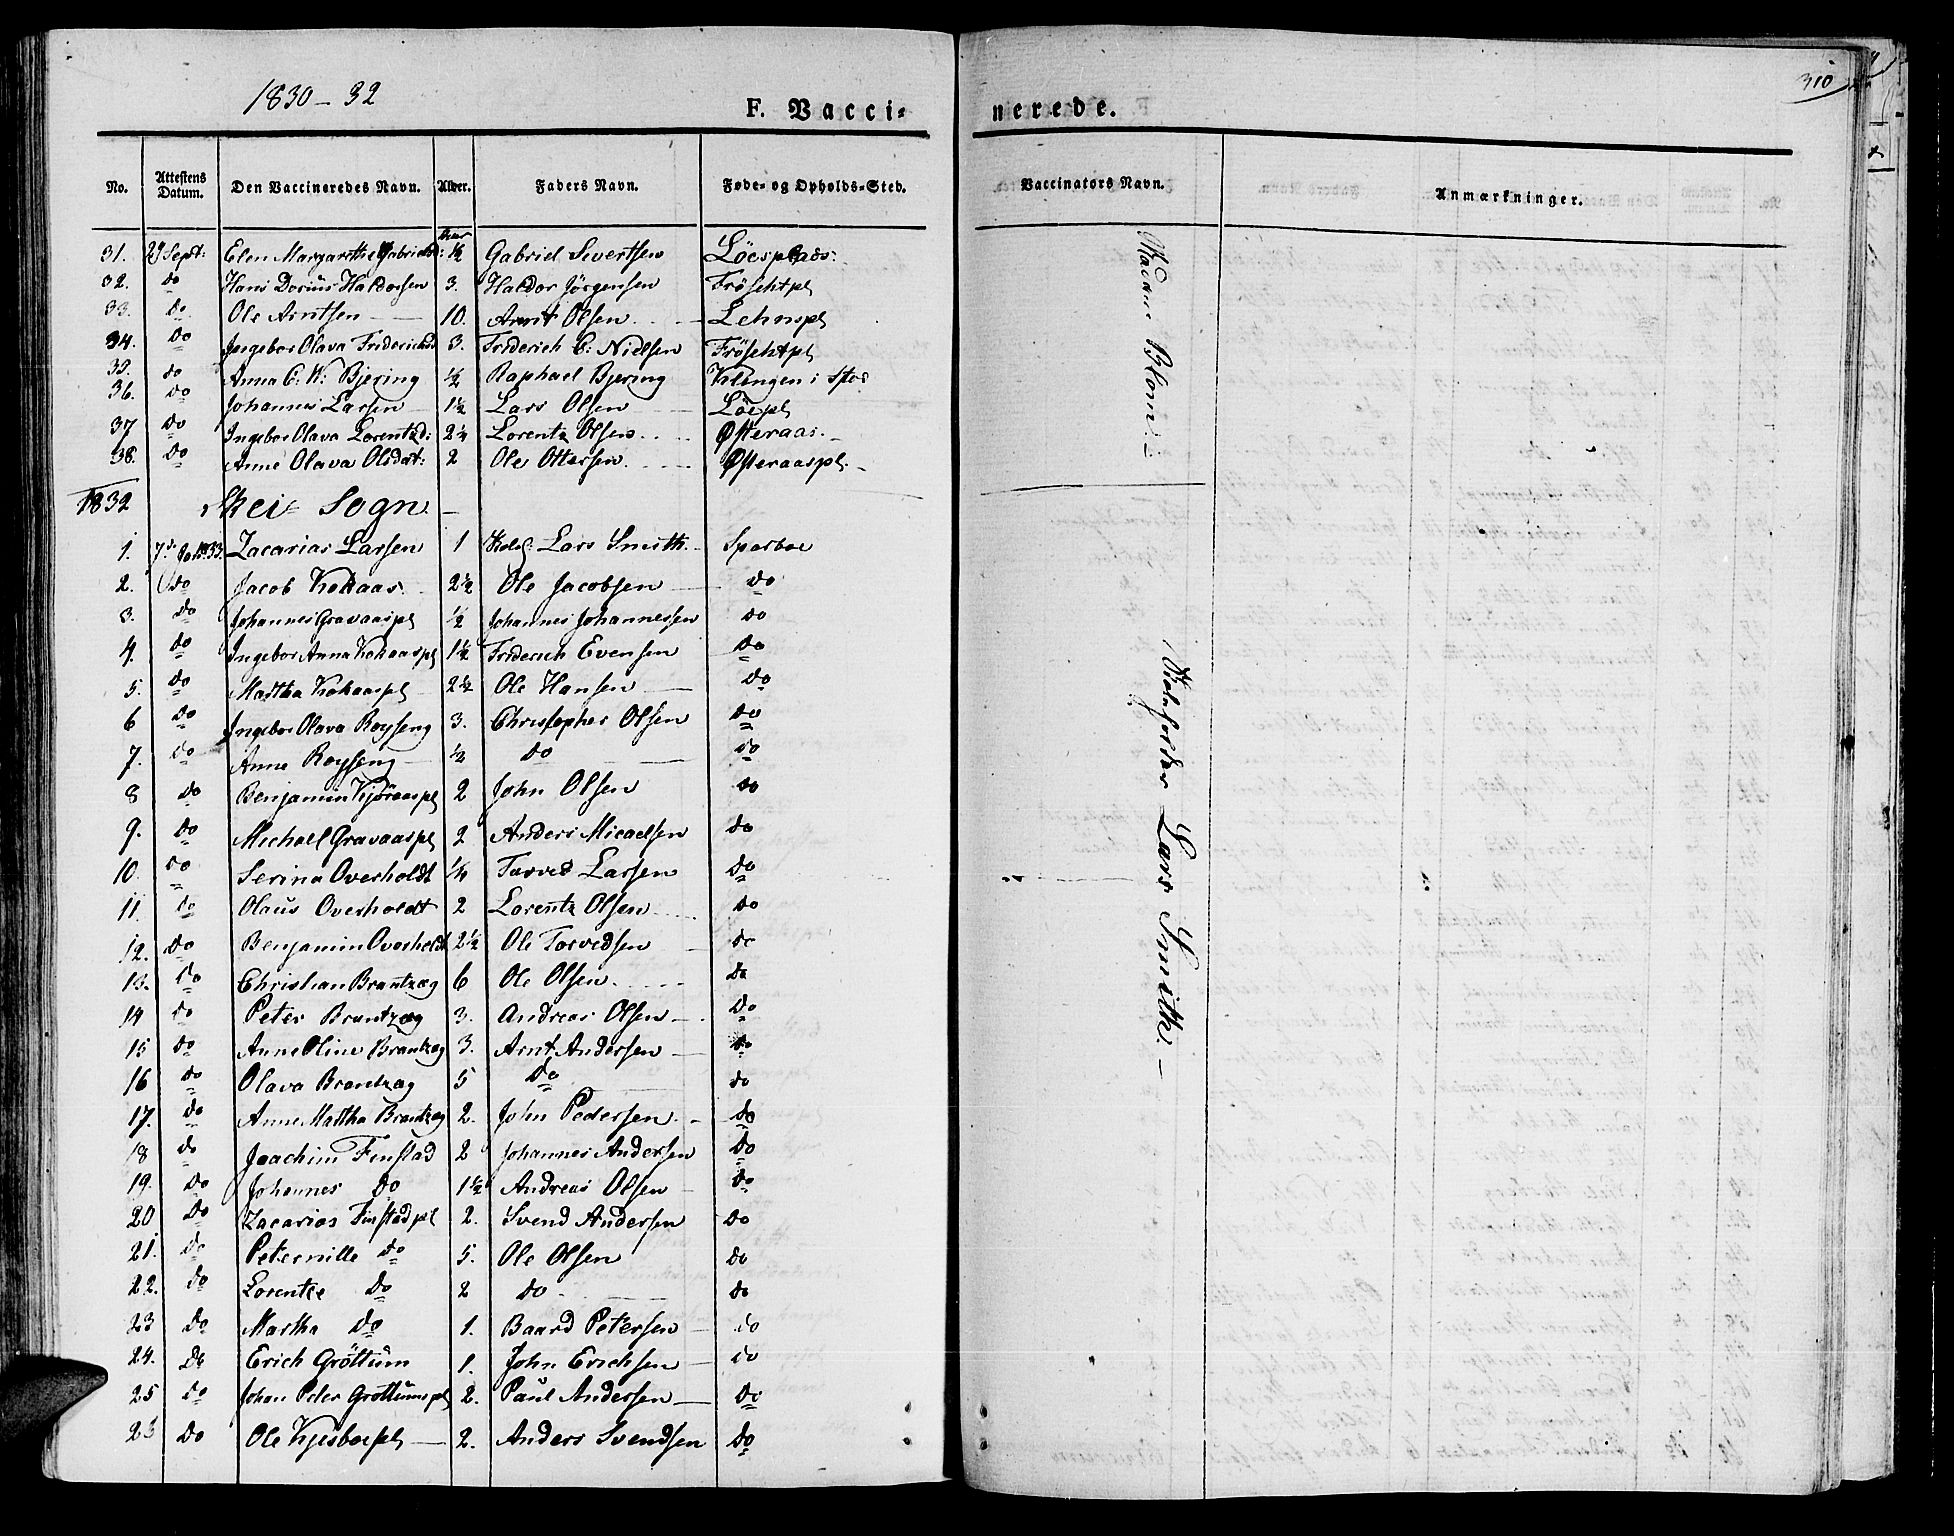 1830-32
F. Vacci-
nerede.
310
No. Attestens Datum. Den Vaccineredes Navn. Alder. Faders Navn. Føde- og Opholds-Sted. Vaccinators Navn. Anmærkninger.
31. 29 Sept: Elen Margarethe Gabrielsd: Aar 1/2 Gabriel Sivertsen Löesplads:
32. do Hans Dorius Haldorsen 3. Haldor Jörgensen Fröschtpl
33. do Ole Arntsen 10. Arnt Olsen Lehnspl
34. do Ingebor Olava Friderichsd 3. Friderich C: Nielsen Fröschtpl
35. do Anna C: W: Bjering 1/2 Raphael Bjering Klingen i Stod
36. do Johannes Larsen 1½ Lars Olsen Löepl
37 do Ingebor Olava Lorentzd: 2¼ Lorentz Olsen Østeraas.
38. do Anne Olava Olsdat: 2 Ole Ottersen Østeraaspl.
Madam Blom:
1832 Skei Sogn.
1. 7de Jan 1833. Zacarias Larsen 1 Lars Smith Sparboe
2. do Jacob Kokaas 2½ Ole Jacobsen do
3. do Johannes Gravaaspl ½ Johannes Johannessen do
4. do Ingebor Anna Kokaaspl 1½ Friderich Evensen do
5. do Martha Kokaaspl 2½ Ole Hansen do
6 do Ingebor Olava Royseng 3. Christopher Olsen do
7. do Anne Royseng ½ do do
8 do Benjamin Kjöraaspl 2 John Olsen do
9. do Michael Gravaaspl 2 Anders Micaelsen do
10. do Serina Overholdt ¼ Torved Larsen do
11. do Olaus Overholdt 2 Lorentz Olsen do
12. do Benjamin Overholdt 2½ Ole Torvedsen do
13. do Christian Brantzæg 6 Ole Olsen do
14 do Peter Brantzæg 3. Andreas Olsen do
15 do Anne Oline Brantzæg 3. Arnt Andersen do
16 do Olava Brantzæg 5 do do
17. do Anne Martha Brantzæg 2. John Pedersen do
18 do Joachim Finstad 2 Johannes Andersen do
19. do Johannes do 1½ Andreas Olsen do
20 do Zacarias Finstadpl 2. Svend Andersen do
21. do Peternille do 5. Ole Olsen do
22. do Lorentze do 2 do do
23 do Martha do 1. Baard Petersen do
24. do Erich Gröttum 1. John Erichsen do
25 do Johan Peter Grottumspl 2. Paul Andersen do
23 do Ole Kjesboepl 2. Anders Svendsen do
Lars Smith